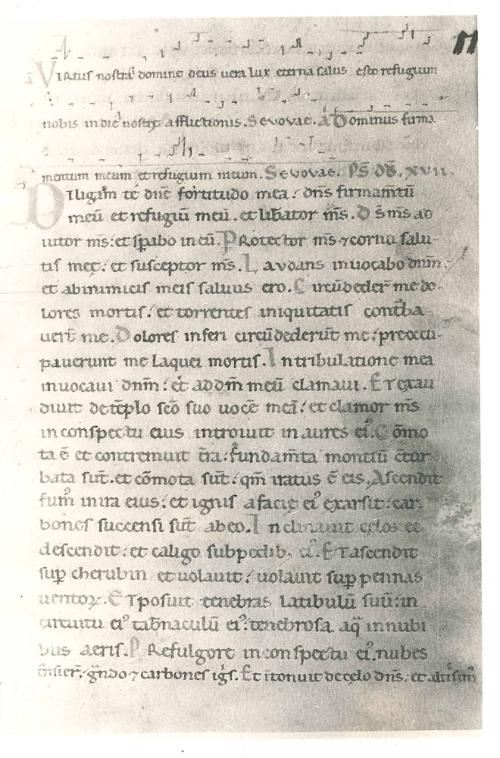 Virtus nostra domine deus uera lux eterna salus esto refugium
nobis in die nostrę afflictionis. Seuouae. A Dominus firma
mentum meum et refugium meum. Seuouae. P̄S D̄D. XVII.
Diligam te dn̄e fortitudo mea: dn̄s firmam̄tū
meū et refugiū meū. et lib̄ator m̄s. D s̄ m̄s ad
iutor m̄s: et sp̄abo in eū. Protector m̄s ⁊ cornu salu
tis meę: et susceptor m̄s. Laudans inuocabo dn̄m:
et ab inimicis meis saluus ero. Circūdeder̄ me do
lores mortis: et torrentes iniquitatis cont̄ba
uer̄t me. Dolores inferi circūdeder̄ūt me: preoccu
pauerunt me laquei mortis. In tribulatione mea
inuocaui dn̄m: et ad dm̄ meū clamaui. Et exau
diuit de tēplo sc̄o suo uocē meā: et clamor m̄s
in conspectu eius introiuit in aures ei᷒. Cōmo
ta ē et contremuit t̄ra: fundam̄ta montiū c̄tur
bata sūt. et cōmota sūt: qm̄ iratus ē eis. Ascendit
fum᷒ in ira eius: et ignis a facie ei᷒ exarsit: car
bones succensi sūt ab eo. Inclinauit cęlos et
descendit: et caligo sub pedib; ei᷒. Et ascendit
sup̄ cherubin et uolauit: uolauit sup̄ pennas
uentoꝝ. Et posuit tenebras latibulū suū: in
circuitu ei᷒ tab̄naculū ei᷒: tenebrosa aq̄ in nubi
bus aeris. P Refulgore in conspectu ei᷒. nubes
t̄nsier̄: ḡndo ⁊ carbones iḡs. Et ītonuit de cęlo dn̄s: et altissim᷒